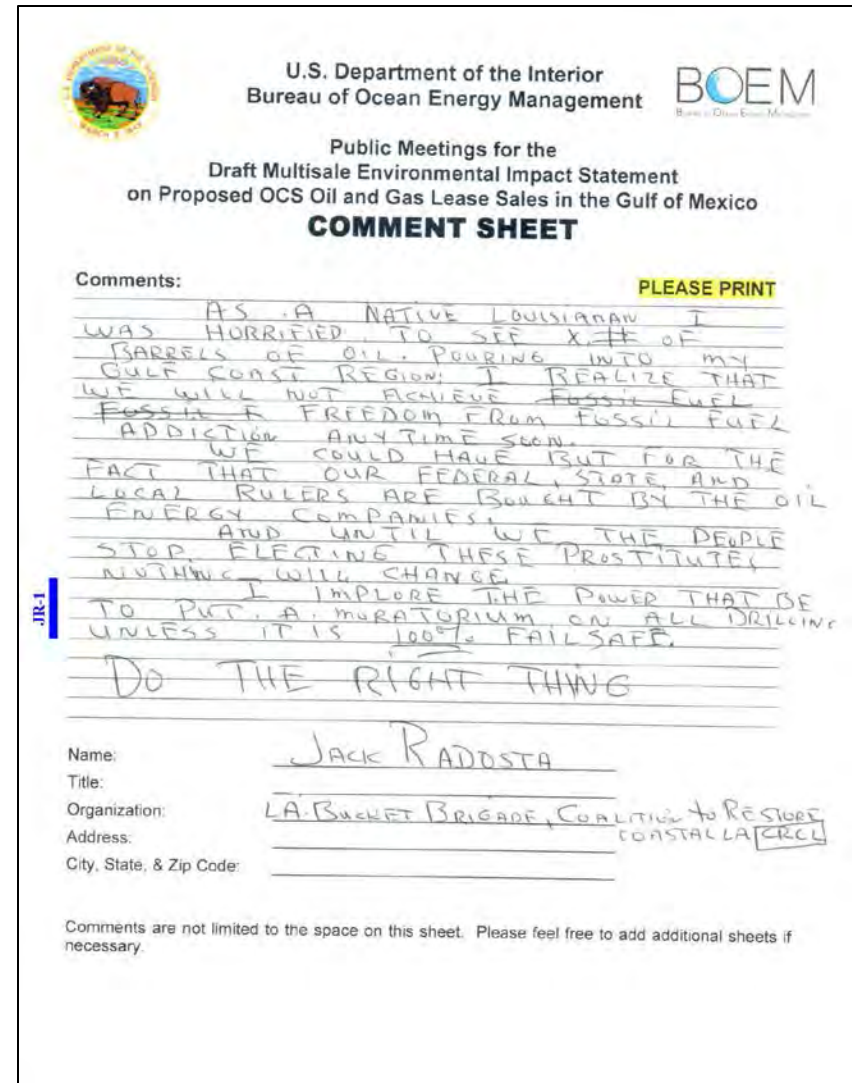 U.S. Department of the Interior
Bureau of Ocean Energy Management
BOEM
Public Meetings for the
Draft Multisale Environmental Impact Statement
on Proposed OCS Oil and Gas Lease Sales in the Gulf of Mexico
COMMENT SHEET
Comments:
PLEASE PRINT
AS A NATIVE LOUISIANAN I
WAS HORRIFIED TO SEE X # OF
BARRELS OF OIL POURING INTO MY
GULF COAST REGION. I REALIZE THAT
WE WILL NOT ACHIEVE FOSSIL FUEL
FOSSIL F FREEDOM FROM FOSSIL FUEL
ADDICTION ANY TIME SOON.
WE COULD HAVE BUT FOR THE
FACT THAT OUR FEDERAL, STATE, AND
LOCAL RULERS ARE BOUGHT BY THE OIL
ENERGY COMPANIES.
AND UNTIL WE THE PEOPLE
STOP ELECTING THESE PROSTITUTES
NOTHING WILL CHANGE
JR-1
I IMPLORE THE POWER THAT BE
TO PUT A MORATORIUM ON ALL DRILLING
UNLESS IT IS 100% FAILSAFE.
DO THE RIGHT THING
Name: JACK RADOSTA
Title:
Organization: LA. BUCKET BRIGADE, COALITION to RESTORE
COASTAL LA CRCL
Address:
City, State, & Zip Code:
Comments are not limited to the space on this sheet. Please feel free to add additional sheets if
necessary.